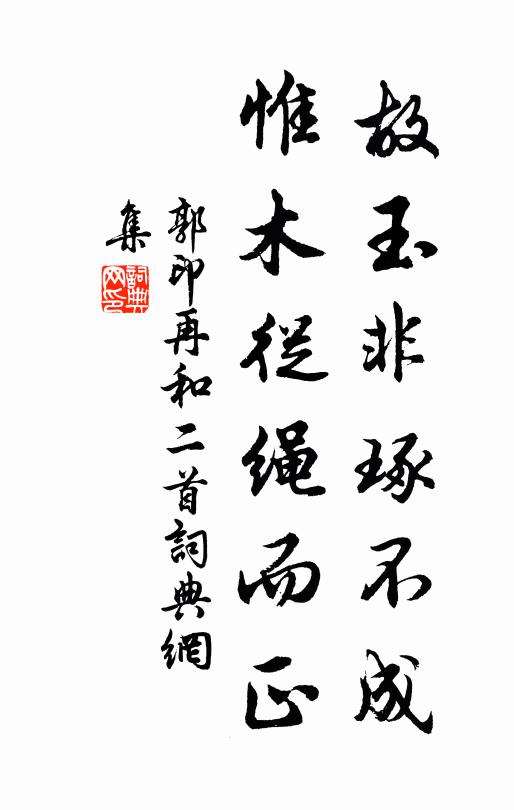 故玉非琢不成
惟木從繩而正
郭印再和二首詞典網
集
詞典
网印